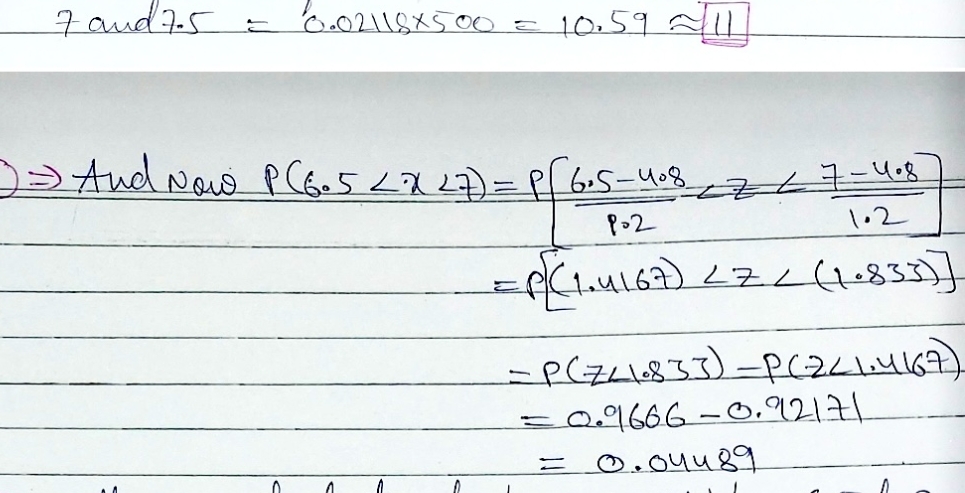 7 and 7.5 = 0.02118×500 = 10.59 ≈ 11
⇒ And Now P(6.5 < x < 7) = P[ (6.5-4.8)/1.2 < z < (7-4.8)/1.2 ]
= P[(1.4167) < z < (1.833)]
= P(z<1.833) - P(z<1.4167)
= 0.9666 - 0.92171
= 0.04489